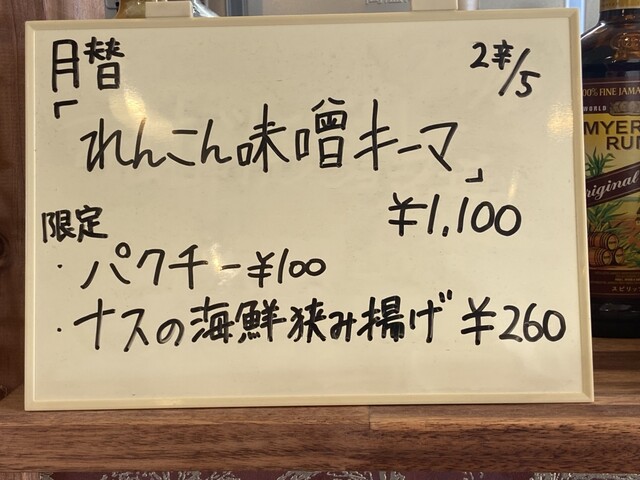 月替 2辛/5
「れんこん味噌キーマ」
¥1,100
限定
・パクチー ¥100
・ナスの海鮮狭み揚げ ¥260
100% FINE JAMA
WORLD
MYER
RUM
Original
スピリッ